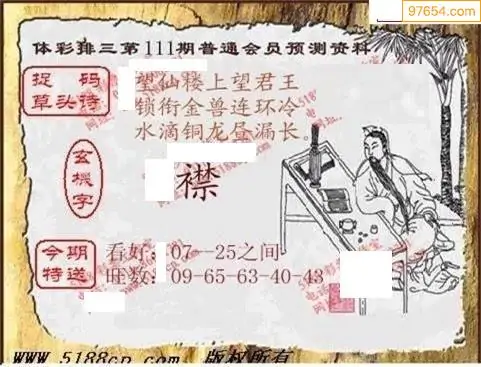 97654.com
体彩排三第111期普通会员预测资料
捉码
草头诗
望仙楼上望君王
锁衔金兽连环冷
水滴铜龙昼漏长。
玄機字
襟
今期
特送
看好:07--25之间
旺数:09-65-63-40-43
www.5188cp.com 版权所有